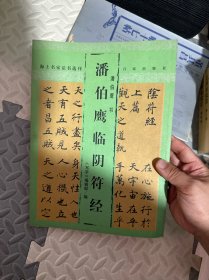 潘伯鹰临阴符经
陰符經
上篇
觀天之道執
天之行盡矣
天有五賊見
之者昌五賊
在心施行於
天宇宙在乎
手萬化生乎
身天性人也
人心機也立